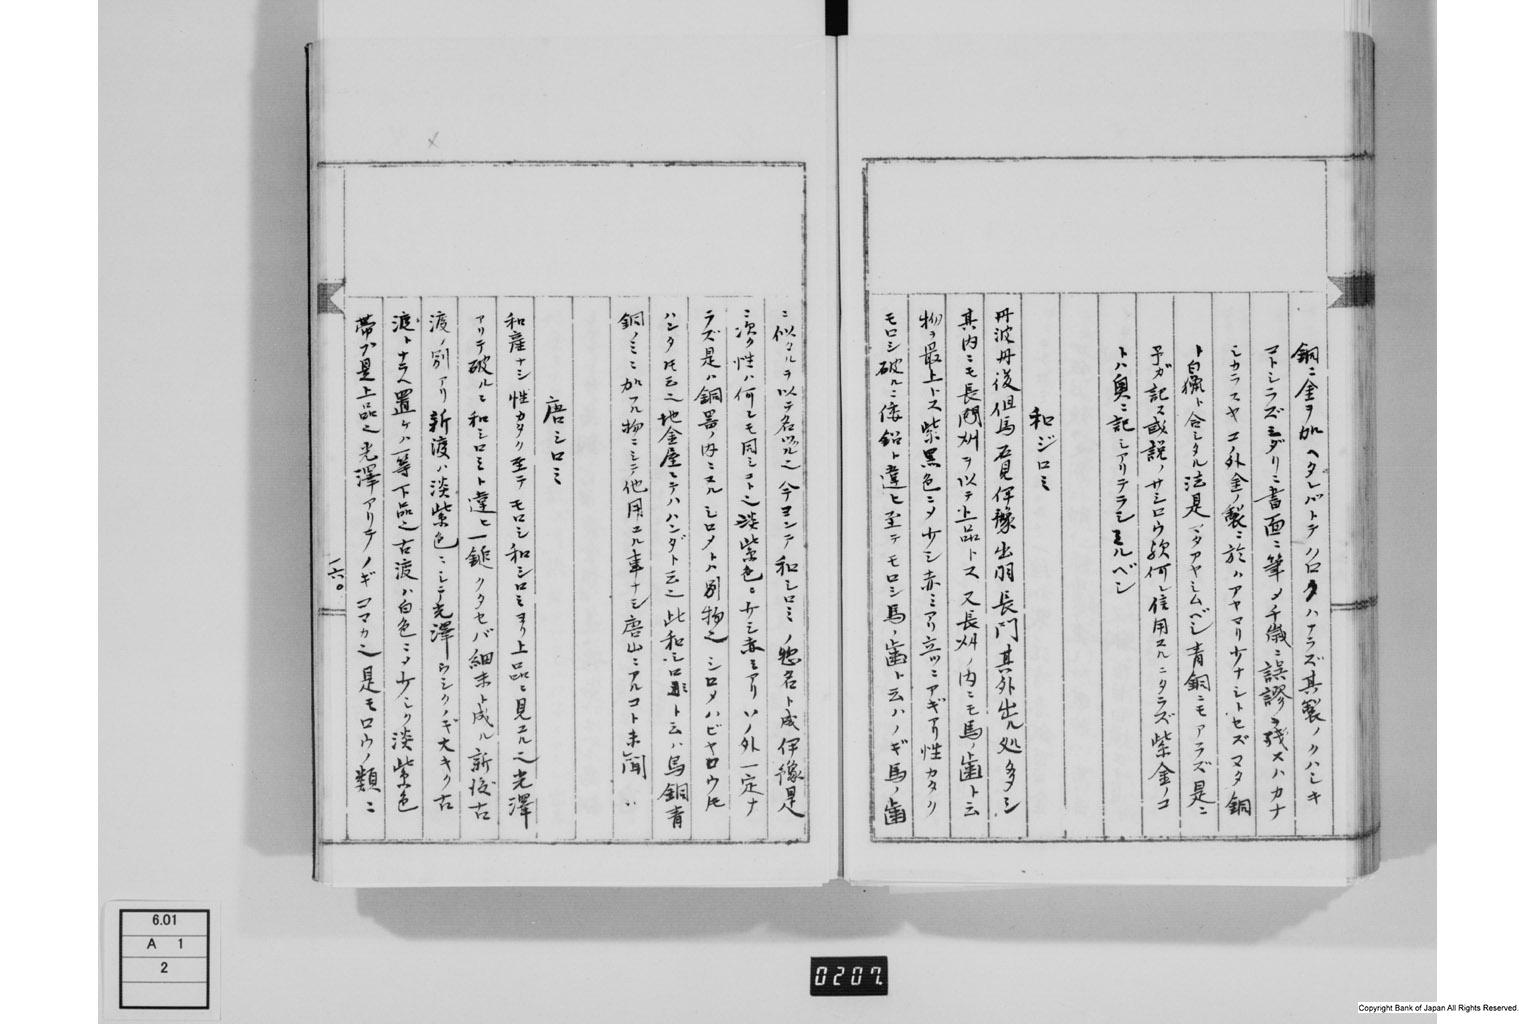 銅ニ金ヲ加ヘタレバトテハロクハナラズ其製ノクハシキ
コトシラズミダリニ書画ニ筆メ千歳ニ誤謬ヲ残スハカナ
シカラスヤ又外金ノ製ニ於ハアヤマリ少ナシトセズマタ銅
ト白鑞ト合シタル法是マタアヤシムベシ青銅ニモアラズ是ニ
予ガ記ス或説ノサシロウ歟何レ信用スルニタラズ紫金ノコ
トハ奥ニ記シアリテラシミルベシ
和ジロミ
丹波丹後但馬石見伊豫出羽長門其外出ル処多シ
其内ニモ長門州ヲ以テ上品トス又長州ノ内ニモ馬ノ歯ト云
物ヲ最上トス紫黒色ニメ少シ赤ミアリ立ツニアギアリ性カタク
モロシ破ルニ倭鉛ト違ヒ至テモロシ馬ノ歯ト云ハノギ馬ノ歯
ニ似タルヲ以テ名ヅル之今ヨンデ和シロミノ惣名ト成伊豫是
ニ次ク性ハ何レモ同シコト之淡紫色ニ少シ赤ミアリソノ外一定ナ
ラズ是ハ銅器ノ内ニ入ルシロメトハ別物之シロメハビヤロウ氏
ハンタ氏云之地金屋ニテハハンダト云之此和シロミト云ハ烏銅青
銅ノミニ加フル物ニシテ他用エル事ナシ唐山ニアルコト未聞
唐シロミ
和産ナシ性カタク至テモロシ和シロミヨリ上品ニ見エル之光澤
アリテ破ルモ和シロミト違ヒ一鎚クタセバ細末ト成ル新渡古
渡ノ別アリ新渡ハ淡紫色ニシテ光澤ウシクノギ大キク古
渡トナラヘ置ケハ一等下品之古渡ハ白色ニメ少シク淡紫色
帯ブ是上品之光澤アリテノギコマカ之是モロウノ類ニ
一六〇
6.01
A 1
2
0207.
Copyright Bank of Japan All Rights Reserved.